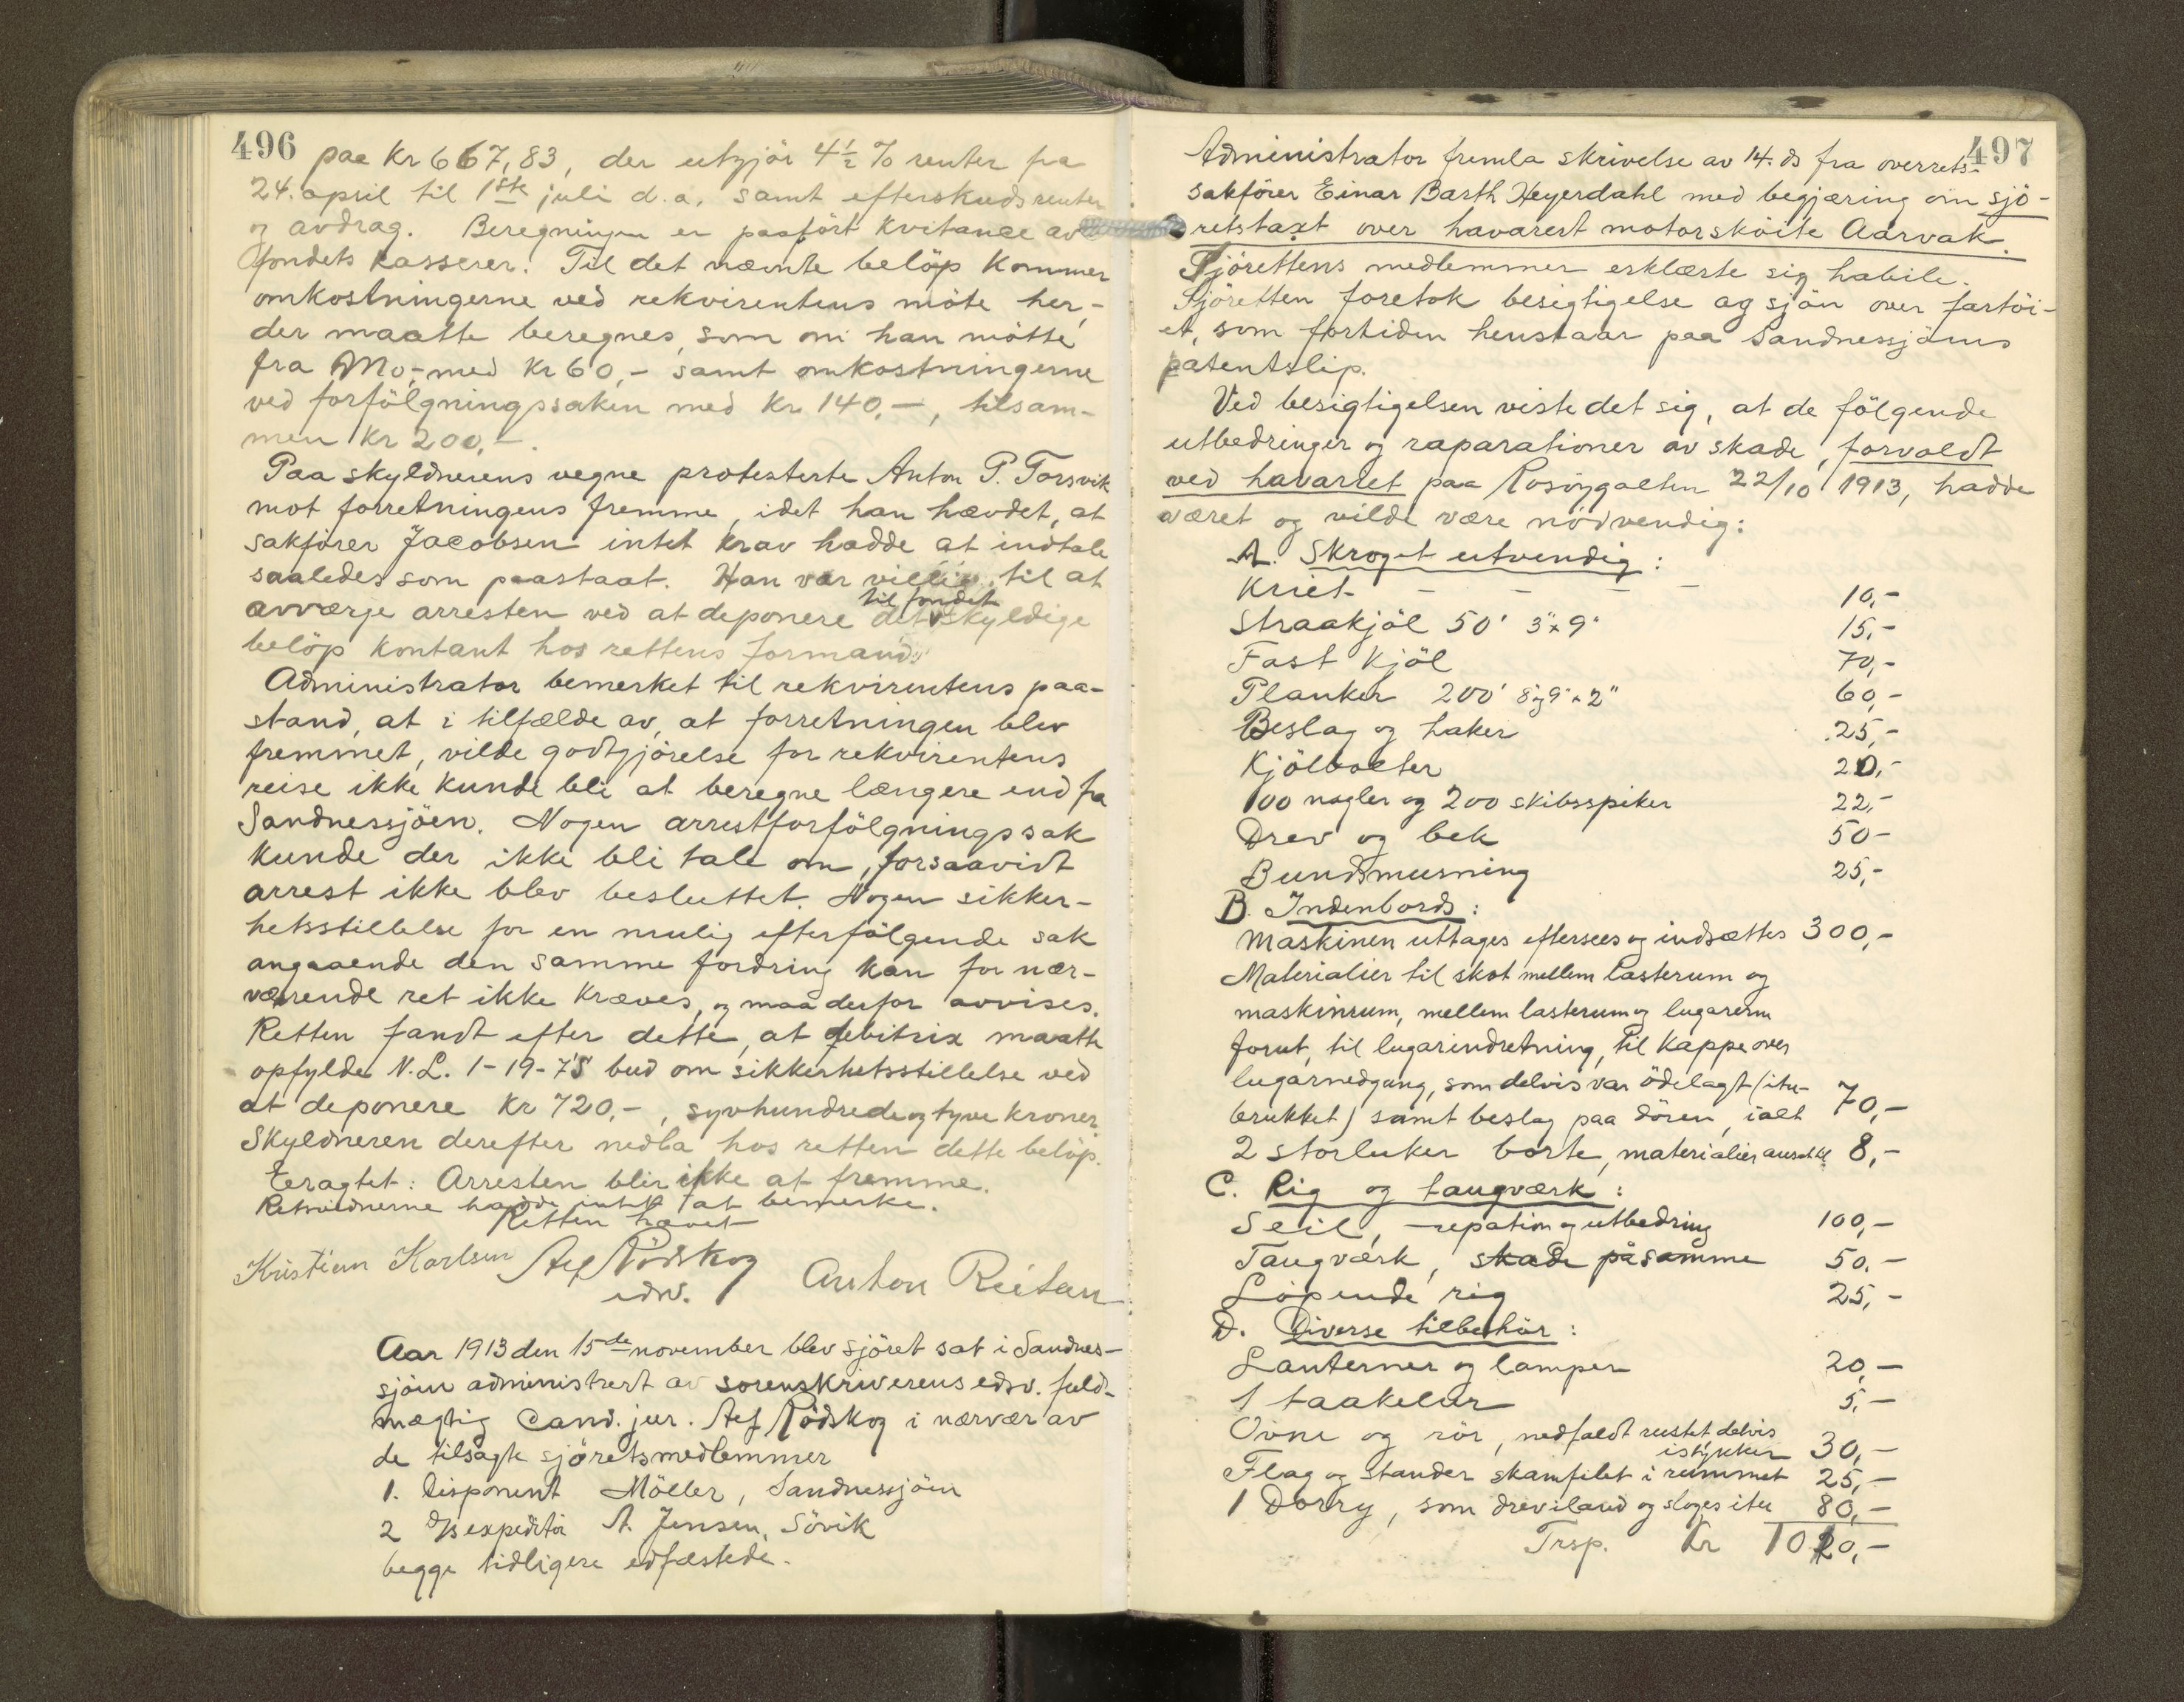 496
paa Kr 667,83, der utgjör 4½ % renter fra
24. april til 1ste juli d.a. samt efterskudsrenter
og avdrag. Beregningen er paafört kvitance av
fondets kasserer. Til det nævnte belöp kommer
omkostningerne ved rekvirentens möte her,-
der maatte beregnes, som om han mötte
fra Mo,- med Kr 60,- samt omkostningerne
ved forfölgningssaken med Kr 140,-, tilsam-
men Kr 200,-.
Paa skyldnerens vegne protesterte Anton P. Torsvik
mot forretningens fremme, idet han hævdet, at
sakförer Jacobsen intet krav hadde at indtale
saaledes som paastaat. Han var villig til at
til fondet
avværje arresten ved at deponere det skyldige
belöp kontant hos rettens formand.
Administrator bemerket til rekvirentens paa-
stand, at i tilfælde av, at forretningen blev
fremmet, vilde godtgjörelse for rekvirentens
reise ikke kunde bli at beregne længere end fra
Sandnessjöen. Nogen arrestforfölgningssak
kunde der ikke bli tale om, forsaavidt
arrest ikke blev besluttet. Nogen sikker-
hetsstillelse for en mulig efterfölgende sak
angaaende den samme fordring kan for nær-
værende ret ikke kræves, og maa derfor avvises.
Retten fandt efter dette, at debitrix maatte
opfylde N.L. 1-19-7's bud om sikkerhetsstillelse ved
at deponere Kr 720,-, syvhundredeogtyve kroner.
Skyldneren derefter nedla hos retten dette belöp.
Eragtet: Arresten blir ikke at fremme.
Retsvidnerne hadde intet at bemerke.
Retten hævet
Kristian Karlsen Alf Rödskog Anton Reitan
edsv.
Aar 1913 den 15de november blev sjöret sat i Sandnes-
sjöen administrert av sorenskriverens edsv. fuld-
mægtig Cand. jur. Alf Rödskog i nærvær av
de tilsagte sjöretsmedlemmer
1. Disponent Möller, Sandnessjöen
2 Dsexpeditör A. Jensen, Sövik
begge tidligere edfæstede.
497
Administrator fremla skrivelse av 14. ds fra overrets-
sakförer Einar Barth Heyerdahl med begjæring om sjö-
retstaxt over havarert motorsköite Aarvak.
Sjörettens medlemmer erklærte sig habile.
Sjöretten foretok besigtigelse og sjön over fartöi-
et, som fortiden henstaar paa Sandnessjöens
patentslip.
Ved besigtigelsen viste det sig, at de fölgende
utbedringer og raparationer av skade, forvoldt
ved havariet paa Rosöygalten 22/10 1913, hadde
været og vilde være nödvendig:
A. Skroget utvendig:
Kriet - - - 10,-
Straakjöl 50' 3"x9" 15,-
Fast kjöl 70,-
Planker 200' 8 og 9" x 2" 60,-
Beslag og haker 25,-
Kjölbolter 20,-
100 nagler og 200 skibsspiker 22,-
Drev og bek 50-
Bundsmurning 25,-
B. Indenbords:
Maskinen uttages eftersees og indsættes 300,-
Materialier til skot mellem lasterum og
maskinrum, mellem lasterum og lugarerne
forut, til lugarindretning, til kappe over
lugarnedgang, som delvis var ödelagt (itu-
brukket) samt beslag paa dören, ialt 70,-
2 storluker borte, materialier ansat til 8,-
C. Rig og taugværk:
Seil, -repation og utbedring 100,-
Taugværk, skade på samme 50.-
Löpende rig 25,-
D. Diverse tilbehör:
Lanterner og lamper 20,-
1 taakelur 5,-
Ovne og rör, nedfaldt rustet, delvis
istykker 30,-
Flag og stander skamfilet i rummet 25,-
1 Dorry, som drev iland og sloges itu 80,-
Trsp. Kr 1020,-